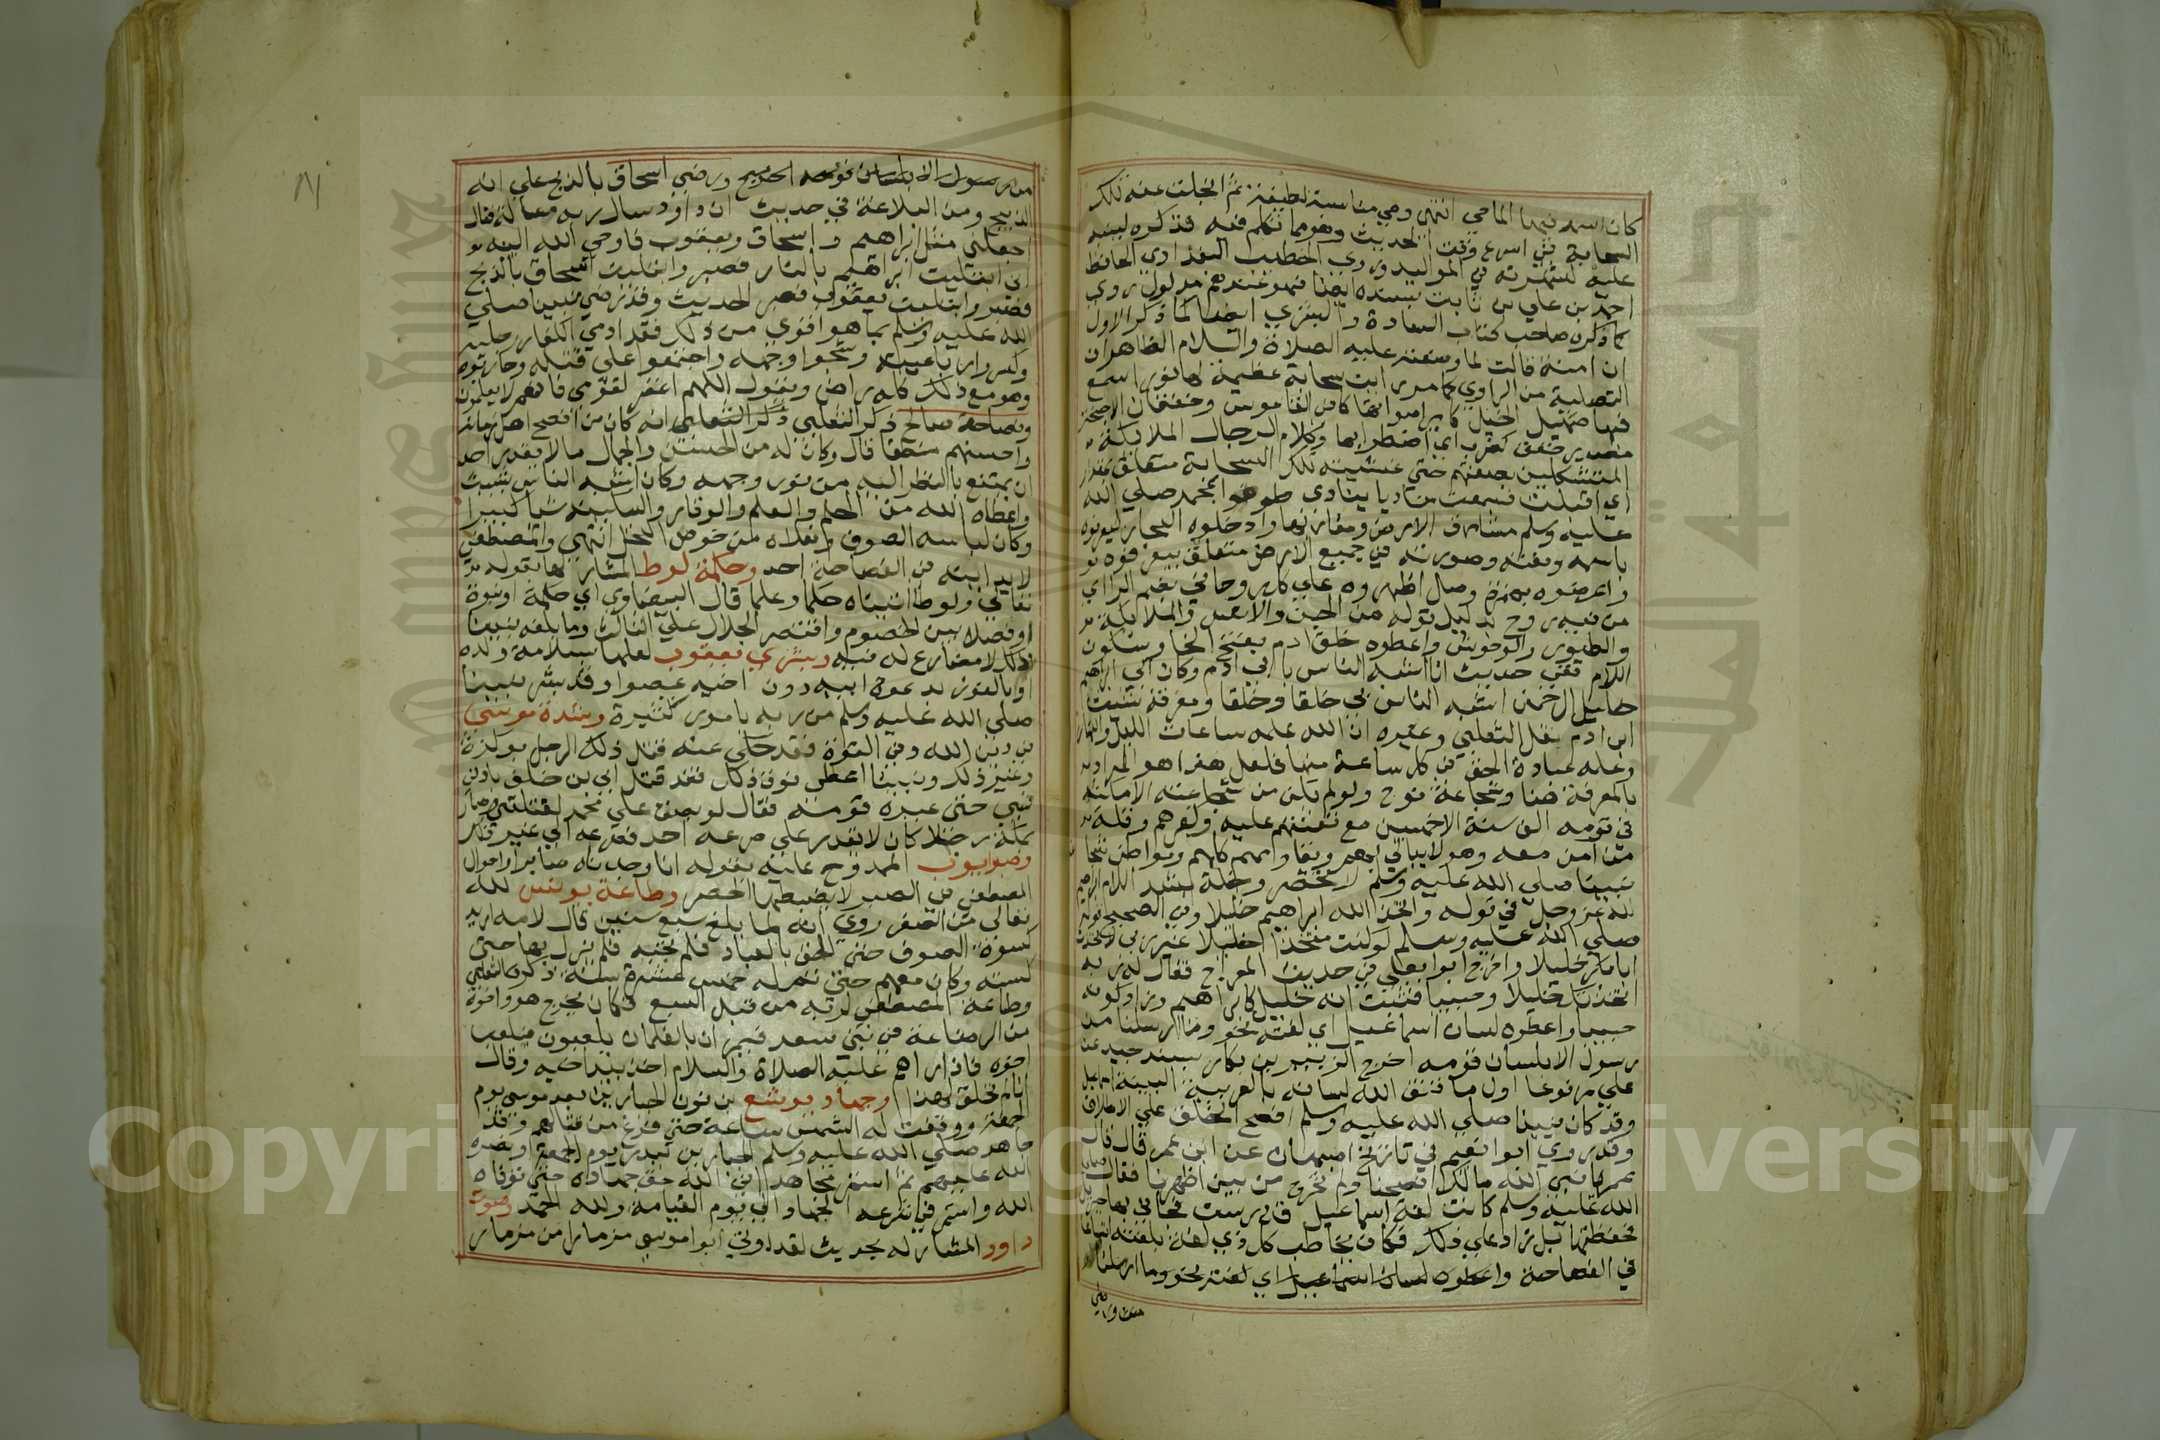 كان اسمه فيها الماحي انتهى وهي مناسبة لطيفة ثم انجلت عنه تلك
السحابة في اسرع وقت الحديث وهو مما تكلم فيه فذكره لينبه
عليه لشهرته في المواليد وروى الخطيب البغدادي الحافظ
احمد بن علي بن ثابت بسنده ايضا فهو عندهم مدلول روي
كما ذكره صاحب كتاب السعادة والبشرى ايضا كما ذكر الاول
ان امنة قالت لما وضعته عليه الصلاة والسلام الظاهر ان
التصلية من الراوي كما مر رايت سحابة عظيمة لها نور اسمع
فيها صهيل الخيل كامير اصواتها كما في القاموس وخفقان الاجنحة
مصدر خفق كضرب اي اضطرابها وكلام الرجال الملائكة
المتشكلين بصفتهم حتى غشيته تلك السحابة متعلق بمقدر
اي اقبلت فسمعت مناديا ينادي طوفوا بمحمد صلى الله
عليه وسلم مشارق الارض ومغاربها وادخلوه البحار ليعرفوه
باسمه ونعته وصورته في جميع الارض متعلق بيعرفوه
واعرضوه بهمزة وصل اظهروه على كل روحاني بضم الراي
من فيه روح بدليل قوله من الجن والانس والملائكة
والطيور والوحوش واعطوه خلق ادم بفتح الخا وسكون
اللام ففي حديث انا اشبه الناس بابي ادم وكان ابي ابراهيم
خليل الرحمن اشبه الناس بي خلقا وخلقا ومعرفة شيث
ابن ادم نقل الثعلبي وغيره ان الله علمه ساعات الليل والنهار
وعلمه عبادة الحق في كل ساعة منها فلعل هذا هو المراد
بالمعرفة هنا وشجاعة نوح ولو لم يكن من شجاعته الا مكثه
في قومه الف سنة الا خمسين مع تعنتهم عليه وكفرهم وقلة
من امن معه وهو لا يبالي بهم ويقاومهم كلهم ومواطن شجاعة
نبينا صلى الله عليه وسلم لا تنحصر وخلة ابراهيم
لله عز وجل في قوله واتخذ الله ابراهيم خليلا وفي الصحيح قوله
صلى الله عليه وسلم لو كنت متخذا خليلا غير ربي لاتخذت
ابا بكر خليلا واخرج ابو يعلى في حديث المعراج فقال له ربه
اتخذتك خليلا وحبيبا فثبت انه خليل كابراهيم وزاد كونه
حبيبا واعطوه لسان اسماعيل اي لغته نحو وما ارسلنا من
رسول الا بلسان قومه اخرج الزبير بن بكار بسند جيد عن
علي مرفوعا اول من فتق الله لسانه بالعربية البينة اسماعيل
وقد كان نبينا صلى الله عليه وسلم افصح الخلق على الاطلاق
وقد روى ابو نعيم في تاريخ اصبهان عن ابن عمر قال قال
عمر يا نبي الله مالك افصحنا ولم تخرج من بين اظهرنا فقال صلى
الله عليه وسلم كانت لغة اسماعيل قد درست فجاني بها جبريل
فحفظتها بل زاد على ذلك فكان يخاطب كل ذي لغة بلغته اتساعا
في الفصاحة واعطوه لسان اسماعيل اي لغته نحو وما ارسلنا
من رسول الا بلسان قومه الحديث ورضى اسحاق بالذبح على انه
الذبيح ومن البلاغة في حديث ان داود سال ربه مسالة فقال
اجعلني مثل ابراهيم واسحاق ويعقوب فاوحى الله اليه
اني ابتليت ابراهيم بالنار فصبر وابتليت اسحاق بالذبح
فصبر وابتليت يعقوب فصبر الحديث وقد رضي نبينا صلى
الله عليه وسلم بما هو اقوى من ذلك فقد ادمى الكفار رجليه
وكسروا رباعيته وشجوا وجهه واجتمعوا على قتله وحاربوه
وهو مع ذلك كله راض ويقول اللهم اغفر لقومي فانهم لا يعلمون
وفصاحة صالح ذكر الثعلبي انه كان من افصح اهل زمانه
واحسنهم منطقا قال وكان له من الحسن والجمال ما لا يقدر احد
ان يمتنع بالنظر اليه من نور وجهه وكان اشبه الناس بشيث
واعطاه الله من الحلم والعلم والوقار والسكينة شيا كثيرا
وكان لباسه الصوف ونعلاه من خوص النخل انتهى والمصطفى
لا يدانيه في الفصاحة احد وحكمة لوط المشار لها بقوله
تعالى ولوطا اتيناه حكما وعلما قال البيضاوي اي حكمة او نبوة
او فصلا بين الخصوم واقتصر الجلال على الثالث وما بلغه نبينا
من ذلك لا مضارع له فيه وبشرى يعقوب لعلها بسلامة ولده
او بالفوز بدعوة ابيه دون اخيه عيصوا وقد بشر نبينا
صلى الله عليه وسلم من ربه بامور كثيرة وشدة موسى
في دين الله وفي القوة فقد حكي عنه قتل ذلك الرجل بوكزة
وغير ذلك ونبينا اعطي فوق ذلك فقد قتل ابي بن خلف بادنى
شي حتى عيره قومه فقال لو بصق علي محمد لقتلني وصارع
بمكة رجلا كان لا يقدر على صرعه احد فصرعه الى غير ذلك
وصبر ايوب الممدوح عليه بقوله انا وجدناه صابرا واحوال
المصطفى في الصبر لا يضبطها الحصر وطاعة يونس لله
تعالى من الصغر روي انه لما بلغ سبع سنين قال لامه اريد
كسوة الصوف حتى الحق بالعباد فلم تجبه فلم يزل بها حتى
كسته وكان معهم حتى تم له خمس عشرة سنة ذكره الثعلبي
وطاعة المصطفى لربه من قبل السبع فكان يخرج هو واخوه
من الرضاعة في بني سعد فيمران بالغلمان يلعبون فيلعب
اخوه فاذا راهم عليه الصلاة والسلام اخذ بيد اخيه وقال
انا لم نخلق لهذا وجهاد يوشع بن نون الجبارين بعد موسى يوم
الجمعة ووقفت له الشمس ساعة حتى فرغ من قتالهم وقد
جاهد صلى الله عليه وسلم الجبارين ببدر يوم الجمعة ونصره
الله عليهم ثم استمر مجاهدا في الله حق جهاده حتى توفاه
الله واستمر في شرعه الجهاد الى يوم القيامة ولله الحمد وصوت
داود المشار له بحديث لقد اوتي ابو موسى مزمارا من مزمار